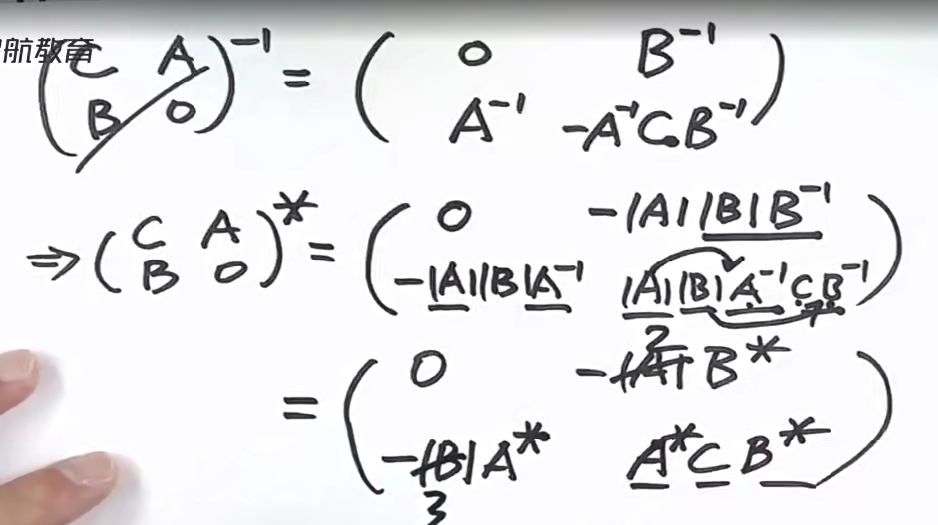 航教育
(C A
B 0)⁻¹ = (0 B⁻¹
A⁻¹ -A⁻¹CB⁻¹)
⇒ (C A
B 0)* = (0 -|A||B|B⁻¹
-|A||B|A⁻¹ |A||B|A⁻¹CB⁻¹)
2
= (0 -|A|B*
-|B|A* A*CB*)
3